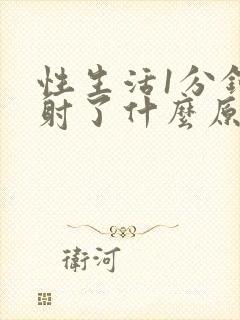 性生活1分
射了什麼原
衛河